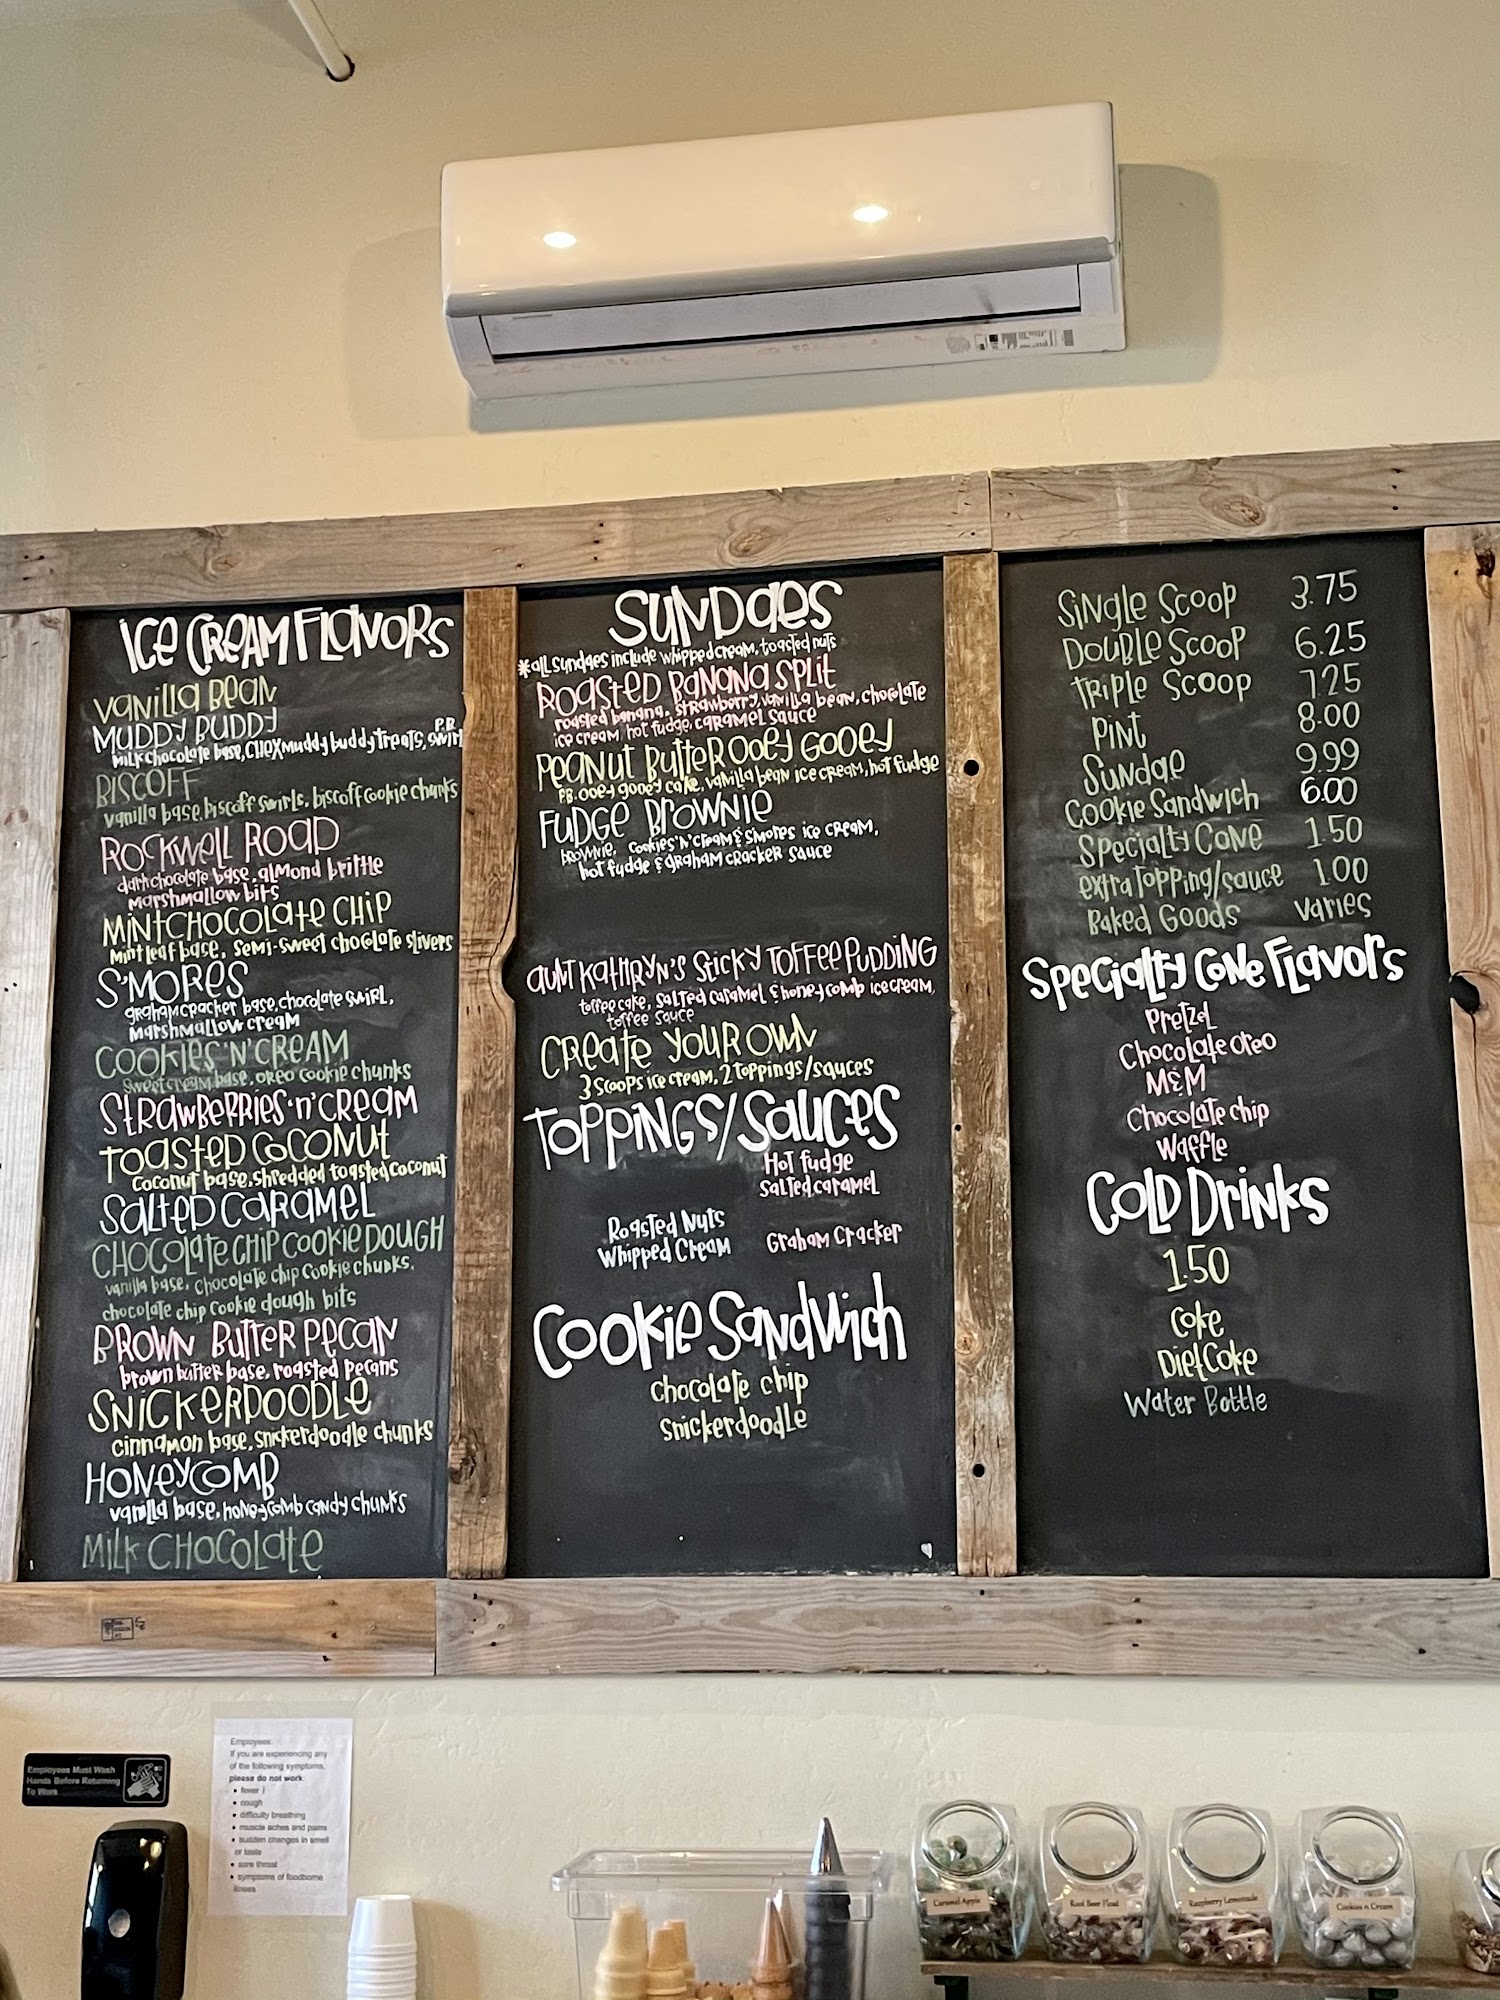 ice CREAM FLAVORS
Vanilla Bean
MUDDY BUDDY
P.B.
Milk chocolate base, CHEX muddy buddy treats, swirl
BISCOFF
vanilla base, biscoff swirls, biscoff cookie chunks
ROCKWELL ROAD
dark chocolate base, almond brittle
marshmallow bits
MINT CHOCOLATE CHIP
Mint leaf base, semi-sweet chocolate slivers
S'MORES
graham cracker base, chocolate swirl,
marshmallow cream
COOKIES 'N' CREAM
sweet cream base, oreo cookie chunks
STRAWBERRIES 'n' CREAM
TOASTED COCONUT
coconut base, shredded toasted coconut
SALTED CARAMEL
CHOCOLATE CHIP COOKIE DOUGH
vanilla base, chocolate chip cookie chunks,
chocolate chip cookie dough bits
BROWN BUTTER PECAN
brown butter base, roasted pecans
SNICKERDOODLE
cinnamon base, snickerdoodle chunks
HONEYCOMB
vanilla base, honeycomb candy chunks
MILK CHOCOLATE
SUNDAES
*all sundaes include whipped cream, toasted nuts
ROASTED BANANA SPLIT
roasted banana, strawberry, vanilla bean, chocolate
ice cream, hot fudge, caramel sauce
PEANUT BUTTER OOEY GOOEY
P.B. ooey gooey cake, vanilla bean ice cream, hot fudge
FUDGE BROWNIE
brownie, cookies 'n' cream & smores ice cream,
hot fudge & graham cracker sauce
AUNT KATHRYN'S STICKY TOFFEE PUDDING
toffee cake, salted caramel & honeycomb ice cream,
toffee sauce
CREATE YOUR OWN
3 scoops ice cream, 2 toppings/sauces
TOPPINGS/SAUCES
Hot fudge
salted caramel
Roasted Nuts
Whipped Cream
Graham Cracker
COOKIE SANDWICH
chocolate chip
snickerdoodle
Single Scoop 3.75
Double Scoop 6.25
Triple Scoop 7.25
Pint 8.00
Sundae 9.99
Cookie Sandwich 6.00
Specialty Cone 1.50
extra Topping/sauce 1.00
Baked Goods varies
Specialty Cone Flavors
Pretzel
Chocolate Oreo
M&M
Chocolate chip
Waffle
COLD DRINKS
1.50
Coke
Diet Coke
Water Bottle
Employees Must Wash
Hands Before Returning
To Work
Employees:
If you are experiencing any
of the following symptoms,
please do not work:
• fever
• cough
• difficulty breathing
• muscle aches and pains
• sudden changes in smell
or taste
• sore throat
• symptoms of foodborne
illness
Caramel Apple
Root Beer Float
Raspberry Lemonade
Cookies n Cream